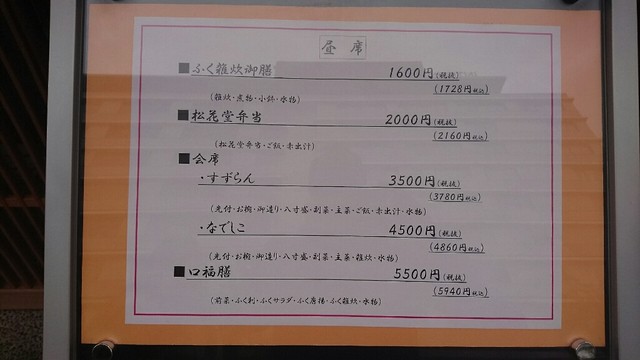 昼 席
■ふく雑炊御膳 1600円(税抜)
(1728円税込)
(雑炊・煮物・小鉢・水物)
■松花堂弁当 2000円(税抜)
(2160円税込)
(松花堂弁当・ご飯・赤出汁)
■会席
・すずらん 3500円(税抜)
(3780円税込)
(先付・お椀・御造り・八寸盛・副菜・主菜・ご飯・赤出汁・水物)
・なでしこ 4500円(税抜)
(4860円税込)
(先付・お椀・御造り・八寸盛・副菜・主菜・雑炊・水物)
■口福膳 5500円(税抜)
(5940円税込)
(前菜・ふく刺・ふくサラダ・ふく唐揚・ふく雑炊・水物)